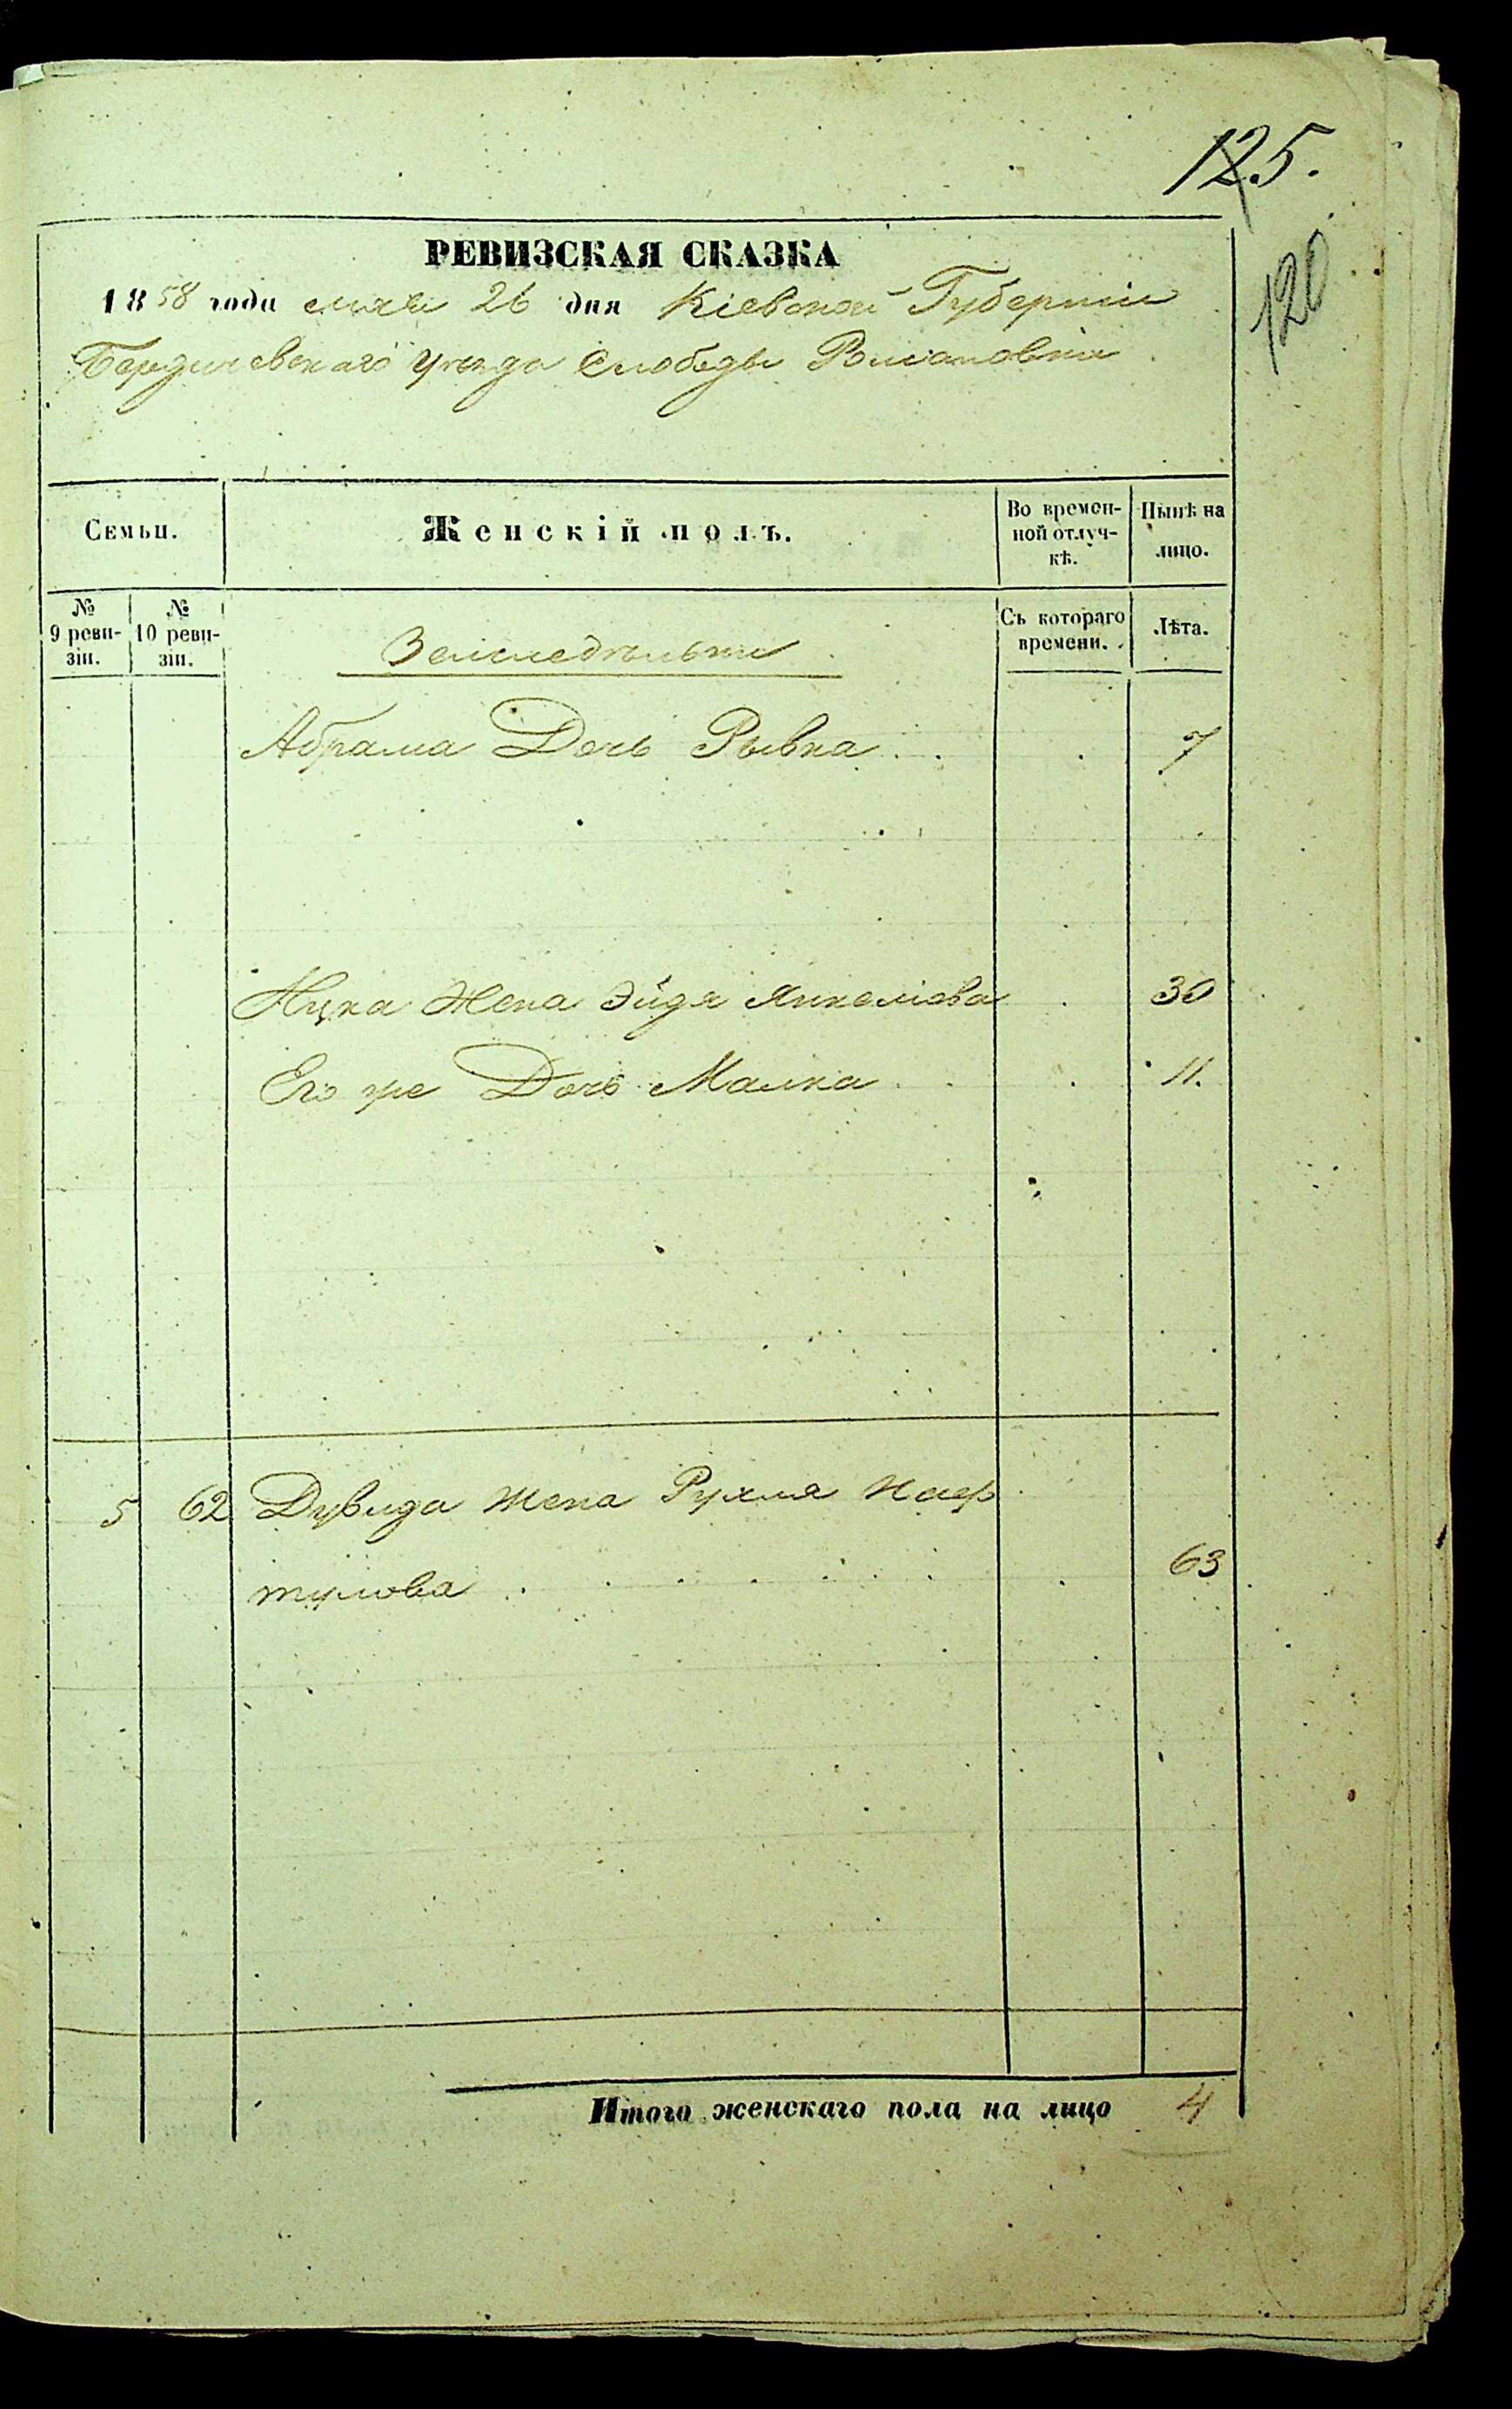 125.
120
РЕВИЗСКАЯ СКАЗКА
1858 года мая 26 дня Кіевской Губерніи
Бердичевскаго уѣзда Слободы Романовки
Семьи. Женскій полъ. Во времен-ной отлуч-кѣ. Нынѣ на лицо.
№ 9 реви-зіи. № 10 реви-зіи. Съ котораго времени. Лѣта.
Земледѣльцы
Абрама Дочь Рывка 7
Ицка Жена Эйдя Янкелiова 30
Его же Дочь Малка 11.
5 62 Дувида жена Рухля Наф
тулова 63
Итого женскаго пола на лицо 4